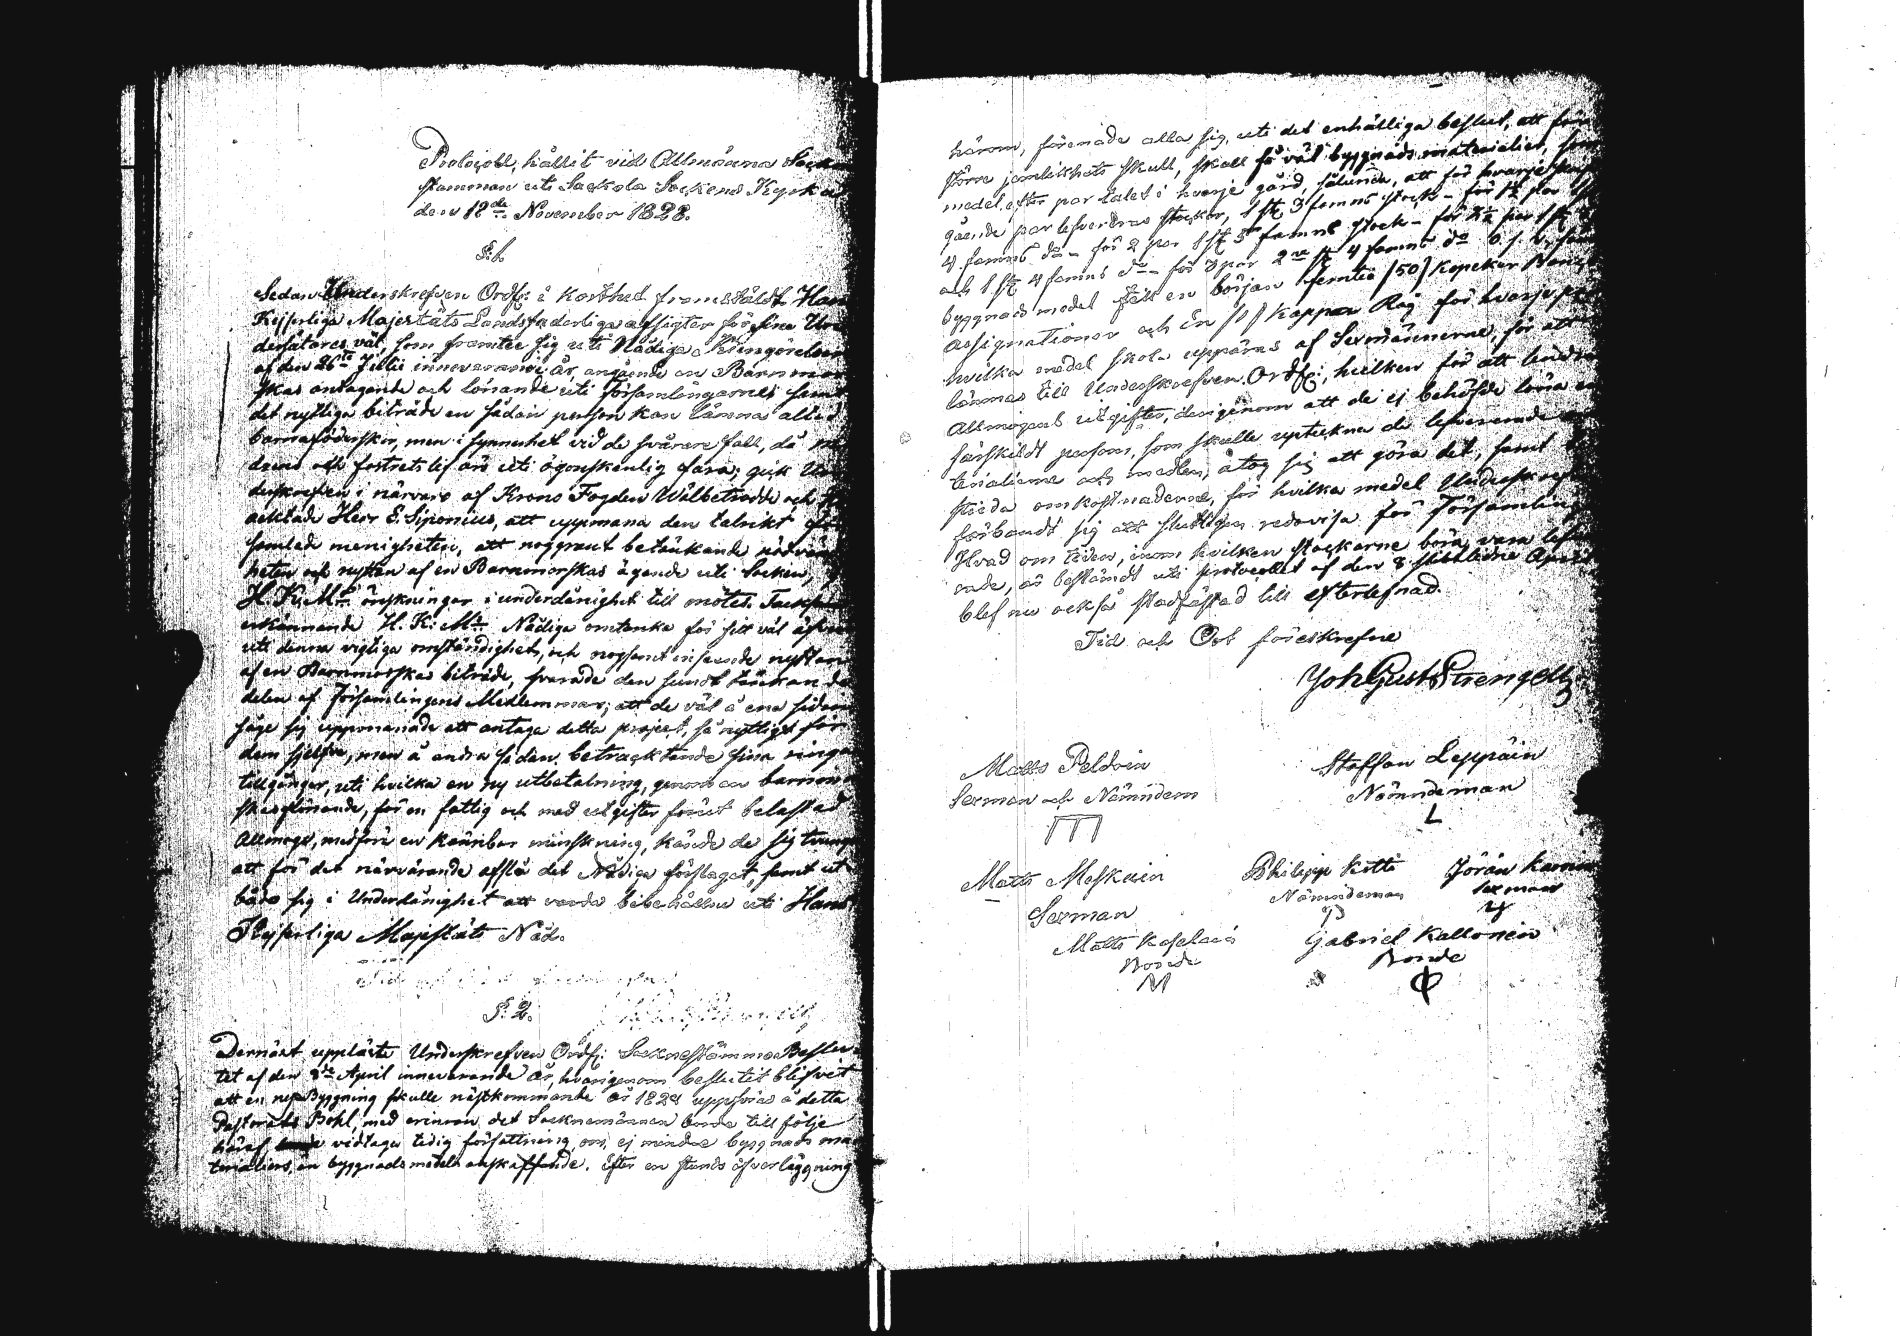 Protocoll, hållit vid Allmänna Sockne
stamman uti Sackola Sockens Kyrka
den 12de November 1828.
§.1.
Sedan Underskrefven Ordf: i korthet framstäldt Hans
Kejserliga Majestäts Landsfaderliga afsigter för sine Un-
dersåtares väl, som framtee sig uti Nådiga Kungörelsen
af den 26te Julii innevarande år, angående en Barnmor-
skas antagande och lönande uti Församlingarne, samt
det nyttiga biträde en sådan person kan lämna alla
barnaföderskor, men i synnerhet vid de svårare fall, då mo-
drens och fostrets lif äro uti ögonskenlig fara; gick Un-
derskrefven i närvaro af Krono Fogden Wälbetrodde och
acktade Herr E. Siponius, att uppmana den talrikt för-
samlade menigheten, att noggrant betänkande nödvändig-
heten och nyttan af en Barnmorskas ägande uti Socken,
H. K. Mts önskningar i underdånighet till mötes. Tacksamt
erkännande H. K. Mts Nådiga omtanka för sitt väl äfven
uti denna vigtiga omständighet, och nogsamt inseende nyttan
af en Barnmorskas biträde, svarade den sundt tänkande
delen af Församlingens Medlemmar; att de väl å ena sidan
såge sig uppmanade att antaga detta project, så nyttigt för
dem sjelfva, men å andra sidan betracktande sina ringa
tillgångar, uti hvilka en ny utbetalning, genom en barnmor-
skas lönande, för en fattig och med utgifter förut belastad
Allmoge, medföra en kännbar minskning, kände de sig tvungne
att för det närvarande afslå det Nådiga förslaget, samt ut-
bådo sig i Underdånighet att varda bibehållne uti Hans
Kejserliga Majestäts Nåd.
§. 2.
Dernäst uppläste Underskrefven Ordf: Sockne Stämmo Beslu-
tet af den 8de April innevarande år, hvarigenom beslutet blifvit
att en ny Byggning skulle nästkommande år 1829 uppföras å detta
Pastorats Bohl, med erinran, det Socknemännen borde till följe
häraf vidtaga tidig författning om, ej mindre byggnads ma-
terialiers, än byggnads medels anskaffande. Efter en stunds öfverläggning
härom, förenade alla sig uti det enhälliga beslut, att för
större jemlikhets skull, skall så väl byggnads materialier, som
medel efter partalet i hvarje gård, sålunda, att för hvarje
gående par lefvereras stockar, 1 st. 3 famns stock - för 1½ par 1 st.
4 famns do - för 2 par 1 st. 5 famns stock - för 2½ par 1 st. 3
och 1 st. 4 famns do - för 3 par 2ne st. 4 famns do o. s. v. samt
byggnads medel till en början femtio /50/ Kopeker Banco
Assignationer och En /1/ Kappa Råg för hvarje par
hvilka medel skola uppbäras af Sexmännerne, för att
lämnas till Underskrefven Ordf:, hvilken för att lindra
Allmogens utgifter, derigenom att de ej behöfde löna en
särskildt person, som skulle upteckna de lefvererade ma-
terialierne och medlen, åtog sig att göra det, samt
strida omkostnaderne, för hvilka medel Underskrefven
förbandt sig att slutligen redovisa för Församlingen.
Hvad om tiden, inom hvilken stockarne böra vara lefve-
rade, är bestämdt uti protocollet af den 8 sistledne April
blef nu också stadfästad till efterlefnad.
Tid och Ort föreskrefne
Joh Gust Strengell
Matts Peldoin
Sexman och Nämndem
Staffan Leppäin
Nämndeman
L
Matts Meskuin
Sexman
Philipp Kotti
Nämndeman
P
Jöran
Sexman
Matts
Bonde
M
Gabriel Kallonein
Bonde